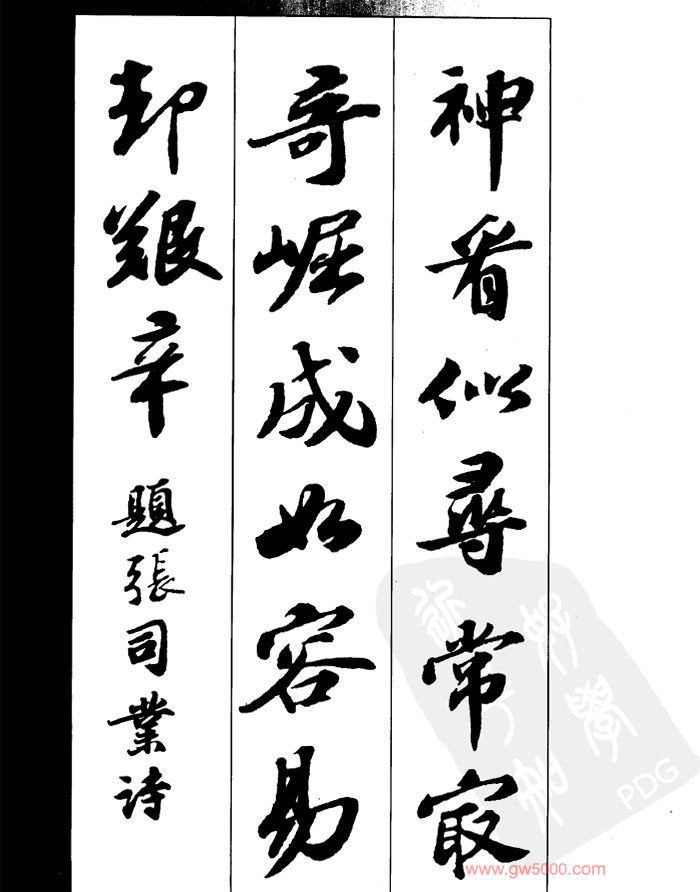 神看似尋常最
奇崛成如容易
却艱辛 題張司業詩
PDG
www.gw5000.com